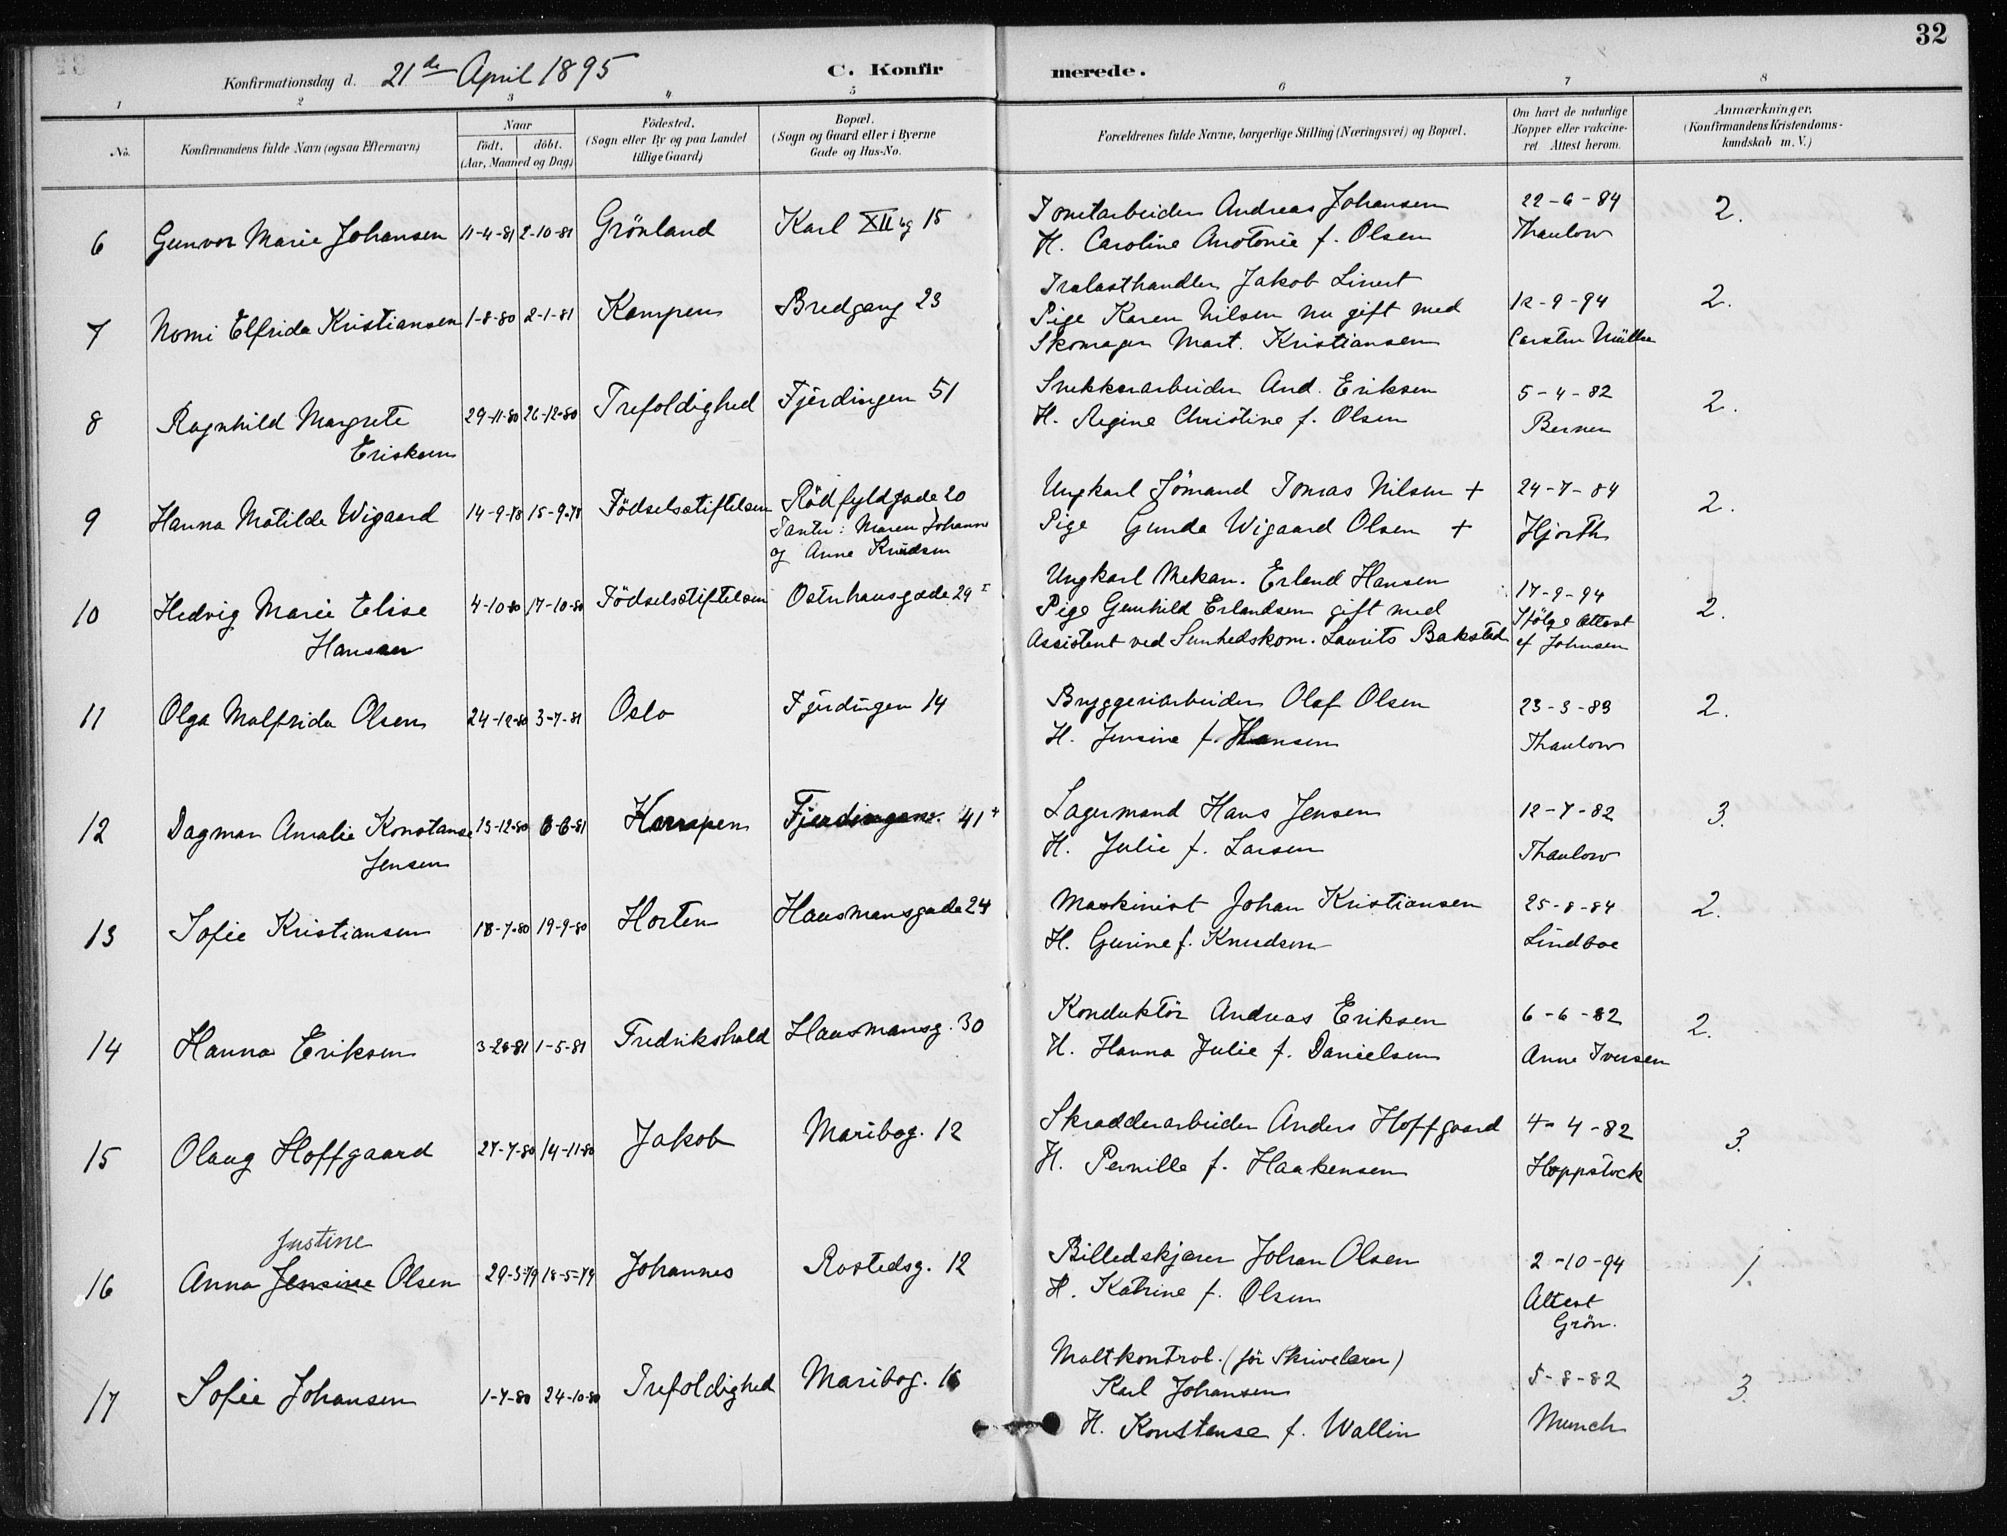 32
Konfirmationsdag d. 21de April 1895
C. Konfirmerede.
1 2 3 4 5 6 7 8
No.
Konfirmandens fulde Navn (ogsaa Efternavn)
Naar
födt. döbt.
(Aar, Maaned og Dag)
Födested.
(Sogn eller By og paa Landet
tillige Gaard)
Bopæl.
(Sogn og Gaard eller i Byerne
Gade og Hus-No.
Forældrenes fulde Navne, borgerlige Stilling (Næringsvei) og Bopæl.
Om havt de naturlige
Kopper eller vakcine-
ret Attest herom.
Anmærkninger,
(Konfirmandens Kristendoms-
kundskab m. V.)
6 Gunvor Marie Johansen 11-4-81 2-10-81 Grönland Karl XII g 15
Andreas Johansen 22-6-84 2.
H. Caroline f. Olsen Thaulow
7 Nomi Elfrida Kristiansen 1-8-80 2-1-81 Kampen Bredgang 23
Trælasthandler Jakob 12-9-94 2.
Pige Karen Nilsen nu gift med
Skomager Mart. Kristiansen Carsten Müller
8 Ragnhild Margrete 29-11-80 26-12-80 Trefoldighed Fjerdingen 51
Eriksen
Snekkerarbeider And. Eriksen 5-4-82 2.
H. Regine Christine f. Olsen Berner
9 Hanna Matilde Wigaard 14-9-78 15-9-78 Födselsstiftelsen Rödfyldgade 20
Tanter: Maren Johanne
og Anne Knudsen
Ungkarl Sömand Tomas Nilsen + 24-7-84 2.
Pige Gunda Wigaard Olsen + Hjorth
10 Hedvig Marie Elise 4-10-80 17-10-80 Födselsstiftelsen Osterhausgade 29 I
Hansen
Ungkarl Mekan. Erland Hansen 17-9-94
Pige Gunhild Erlandsen gift med Ifölge Attest 2.
Assistent ved Sunhedskom. Laurits Bakstad af Johnsen
11 Olga Malfrida Olsen 24-12-80 3-7-81 Oslo Fjerdingen 14
Bryggeriarbeider Olaf Olsen 23-3-83 2.
H. Jensine f. Hansen Thaulow
12 Dagmar Amalie Konstanse 13-12-80 6-6-81 Kampen Fjerdingen. 41
Jensen
Lagermand Hans Jensen 12-7-82 3.
H. Julie f. Larsen Thaulow
13 Sofie Kristiansen 18-7-80 19-9-80 Horten Hausmansgade 24
Maskinist Johan Kristiansen 25-8-84 2.
H. Gurine f. Knudsen Lindboe
14 Hanna Eriksen 3-26-81 1-5-81 Fredrikshald Hausmansg. 30
Konduktör Andreas Eriksen 6-6-82 2.
H. Hanna Julie f. Danielsen Anne Iversen
15 Olaug Hoffgaard 27-7-80 14-11-80 Jakob Maribog. 12
Skrædderarbeider Anders Hoffgaard 4-4-82 3.
H. Pernille f. Haakensen Hoppstock
Justine
16 Anna Jensine Olsen 29-3-79 18-5-79 Johannes Rostedsg. 12
Billedskjærer Johan Olsen 2-10-94 1.
H. Katrine f. Olsen Attest
Grön.
17 Sofie Johansen 1-7-80 24-10-80 Trefoldighed Maribog. 16
Maltkontrol. (för Skrivelærer)
Karl Johansen 5-8-82 3.
H. Konstanse f. Wallin Munch